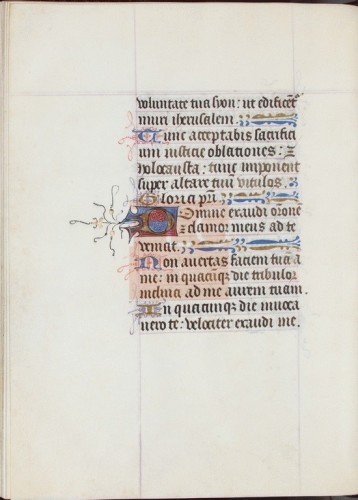 voluntate tua syon: ut edificent
muri iherusalem.
Tunc acceptabis sacrifici
um iusticie oblationes: et
holocausta: tunc imponent
super altare tuu vitulos.
Gloria pri.
Domine exaudi oronē
et clamor meus ad te
veniat.
Non avertas faciem tuā a
me: in quacūqꝫ die tribulor
inclina ad me aurem tuam.
In quacunqꝫ die invoca
vero te: velociter exaudi me.